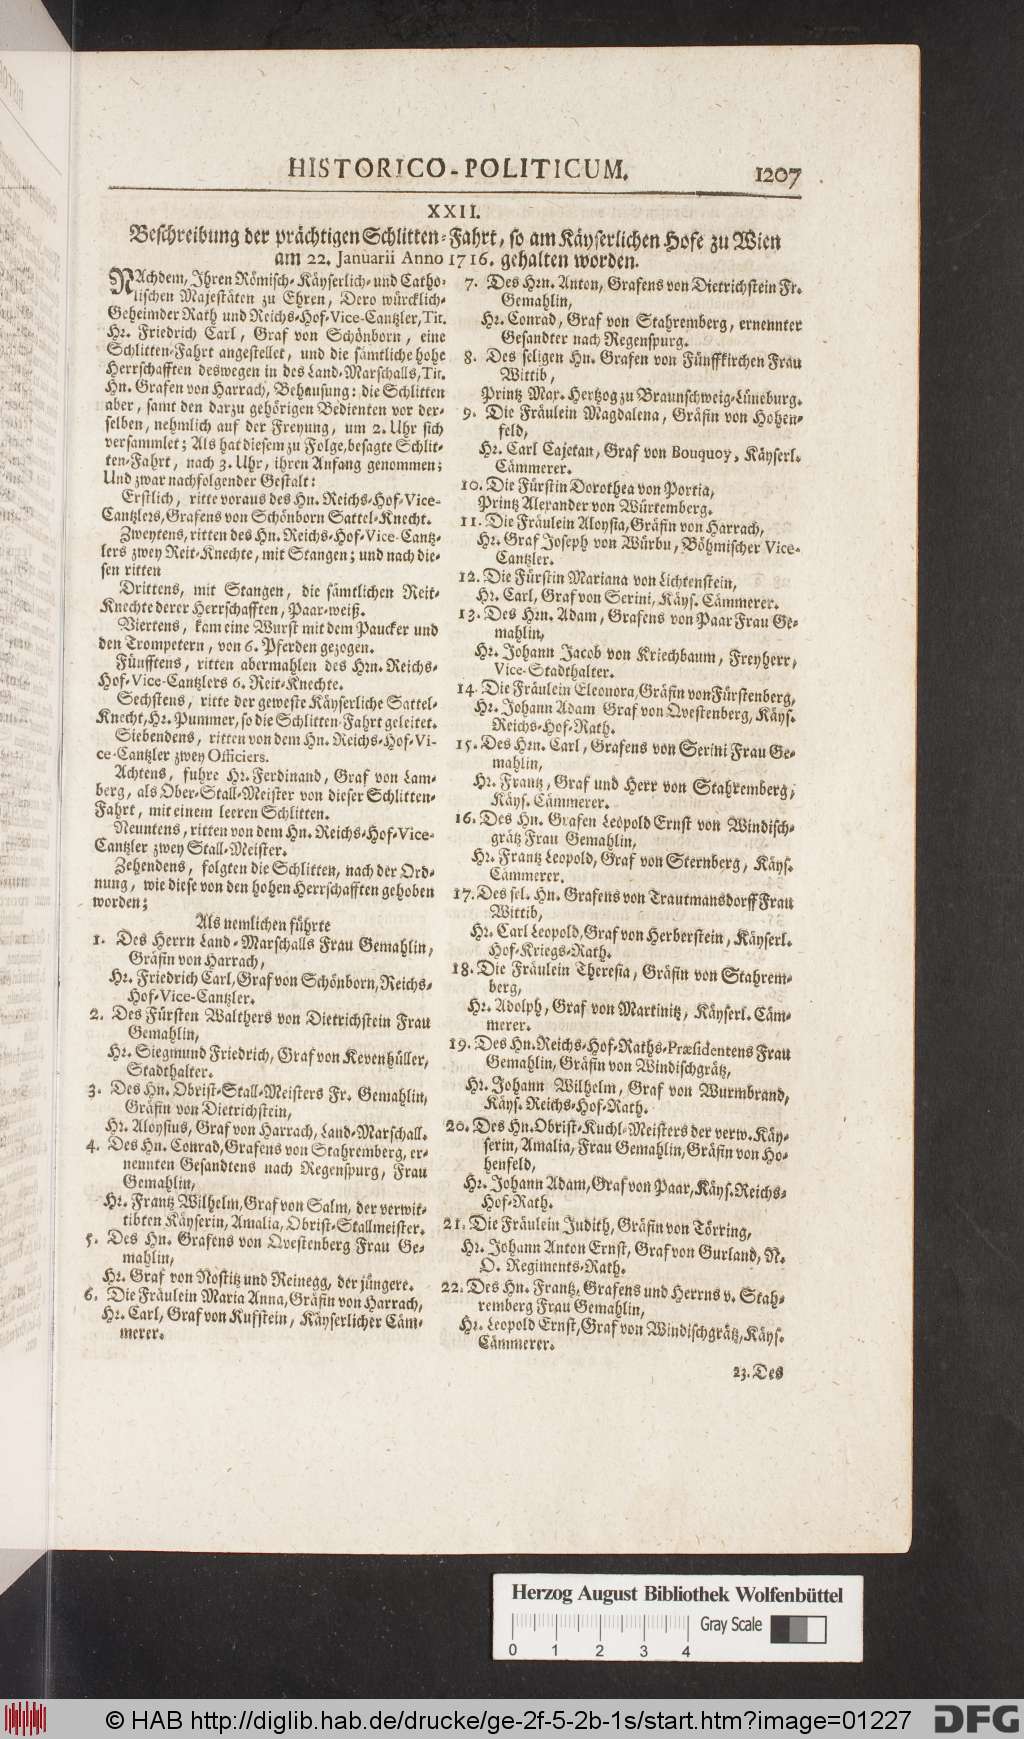 HISTORICO-POLITICUM. 1207
XXII.
Beschreibung der prächtigen Schlitten-Fahrt, so am Käyserlichen Hofe zu Wien
am 22. Januarii Anno 1716. gehalten worden.
NAchdem, Ihren Römisch-Käyserlich- und Catho-
lischen Majestäten zu Ehren, Dero würcklich-
Geheimder Rath und Reichs-Hof-Vice-Cantzler, Tit.
Hr. Friedrich Carl, Graf von Schönborn, eine
Schlitten-Fahrt angestellet, und die sämtliche hohe
Herrschafften deswegen in des Land-Marschalls, Tit.
Hn. Grafen von Harrach, Behausung: die Schlitten
aber, samt den darzu gehörigen Bedienten vor der-
selben, nehmlich auf der Freyung, um 2. Uhr sich
versammlet; Als hat diesem zu Folge, besagte Schlit-
ten-Fahrt, nach 3. Uhr, ihren Anfang genommen;
Und zwar nachfolgender Gestalt:
Erstlich, ritte voraus des Hn. Reichs-Hof-Vice-
Cantzlers, Grafens von Schönborn Sattel-Knecht.
Zweytens, ritten des Hn. Reichs-Hof-Vice-Cantz-
lers zwey Reit-Knechte, mit Stangen; und nach die-
sen ritten
Drittens, mit Stangen, die sämtlichen Reit-
Knechte derer Herrschafften, Paar-weiß.
Viertens, kam eine Wurst mit dem Paucker und
den Trompetern, von 6. Pferden gezogen.
Fünfftens, ritten abermahlen des Hrn. Reichs-
Hof-Vice-Cantzlers 6. Reit-Knechte.
Sechstens, ritte der geweste Käyserliche Sattel-
Knecht, Hr. Pummer, so die Schlitten-Fahrt geleitet.
Siebendens, ritten von dem Hn. Reichs-Hof-Vi-
ce-Cantzler zwey Officiers.
Achtens, fuhre Hr. Ferdinand, Graf von Lam-
berg, als Ober-Stall-Meister von dieser Schlitten-
Fahrt, mit einem leeren Schlitten.
Neuntens, ritten von dem Hn. Reichs-Hof-Vice-
Cantzler zwey Stall-Meister.
Zehendens, folgten die Schlitten, nach der Ord-
nung, wie diese von den hohen Herrschafften gehoben
worden;
Als nemlichen führte
1. Des Herrn Land-Marschalls Frau Gemahlin,
Gräfin von Harrach,
Hr. Friedrich Carl, Graf von Schönborn, Reichs-
Hof-Vice-Cantzler.
2. Des Fürsten Walthers von Dietrichstein Frau
Gemahlin,
Hr. Siegmund Friedrich, Graf von Keventhüller,
Stadthalter.
3. Des Hn. Obrist-Stall-Meisters Fr. Gemahlin,
Gräfin von Dietrichstein,
Hr. Aloysius, Graf von Harrach, Land-Marschall.
4. Des Hn. Conrad, Grafens von Stahremberg, er-
nennten Gesandtens nach Regenspurg, Frau
Gemahlin,
Hr. Frantz Wilhelm, Graf von Salm, der verwit-
tibten Käyserin, Amalia, Obrist-Stallmeister.
5. Des Hn. Grafens von Qvestenberg Frau Ge-
mahlin,
Hr. Graf von Nostitz und Reinegg, der jüngere.
6. Die Fräulein Maria Anna, Gräfin von Harrach,
Hr. Carl, Graf von Kufstein, Käyserlicher Cäm-
merer.
7. Des Hrn. Anton, Grafens von Dietrichstein Fr.
Gemahlin,
Hr. Conrad, Graf von Stahremberg, ernennter
Gesandter nach Regenspurg.
8. Des seligen Hn. Grafen von Fünffkirchen Frau
Wittib,
Printz Max. Hertzog zu Braunschweig-Lüneburg.
9. Die Fräulein Magdalena, Gräfin von Hohen-
feld,
Hr. Carl Cajetan, Graf von Bouquoy, Käyserl.
Cämmerer.
10. Die Fürstin Dorothea von Portia,
Printz Alexander von Würtemberg.
11. Die Fräulein Aloysia, Gräfin von Harrach,
Hr. Graf Joseph von Würbu, Böhmischer Vice-
Cantzler.
12. Die Fürstin Mariana von Lichtenstein,
Hr. Carl, Graf von Serini, Käys. Cämmerer.
13. Des Hrn. Adam, Grafens von Paar Frau Ge-
mahlin,
Hr. Johann Jacob von Kriechbaum, Freyherr,
Vice-Stadthalter.
14. Die Fräulein Eleonora, Gräfin von Fürstenberg,
Hr. Johann Adam Graf von Qvestenberg, Käys.
Reichs-Hof-Rath.
15. Des Hrn. Carl, Grafens von Serini Frau Ge-
mahlin,
Hr. Frantz, Graf und Herr von Stahremberg,
Käys. Cämmerer.
16. Des Hn. Grafen Leopold Ernst von Windisch-
grätz Frau Gemahlin,
Hr. Frantz Leopold, Graf von Sternberg, Käys.
Cämmerer.
17. Des sel. Hn. Grafens von Trautmansdorff Frau
Wittib,
Hr. Carl Leopold, Graf von Herberstein, Käyserl.
Hof-Kriegs-Rath.
18. Die Fräulein Theresia, Gräfin von Stahrem-
berg,
Hr. Adolph, Graf von Martinitz, Käyserl. Cäm-
merer.
19. Des Hn. Reichs-Hof-Raths-Præsidentens Frau
Gemahlin, Gräfin von Windischgrätz,
Hr. Johann Wilhelm, Graf von Wurmbrand,
Käys. Reichs-Hof-Rath.
20. Des Hn. Obrist-Kuchl-Meisters der verw. Käy-
serin, Amalia, Frau Gemahlin, Gräfin von Ho-
henfeld,
Hr. Johann Adam, Graf von Paar, Käys. Reichs-
Hof-Rath.
21. Die Fräulein Judith, Gräfin von Törring,
Hr. Johann Anton Ernst, Graf von Gurland, N.
O. Regiments-Rath.
22. Des Hn. Frantz, Grafens und Herrns v. Stah-
remberg Frau Gemahlin,
Hr. Leopold Ernst, Graf von Windischgrätz, Käys.
Cämmerer.
23. Des
Herzog August Bibliothek Wolfenbüttel
Gray Scale
0 1 2 3 4
© HAB http://diglib.hab.de/drucke/ge-2f-5-2b-1s/start.htm?image=01227
DFG